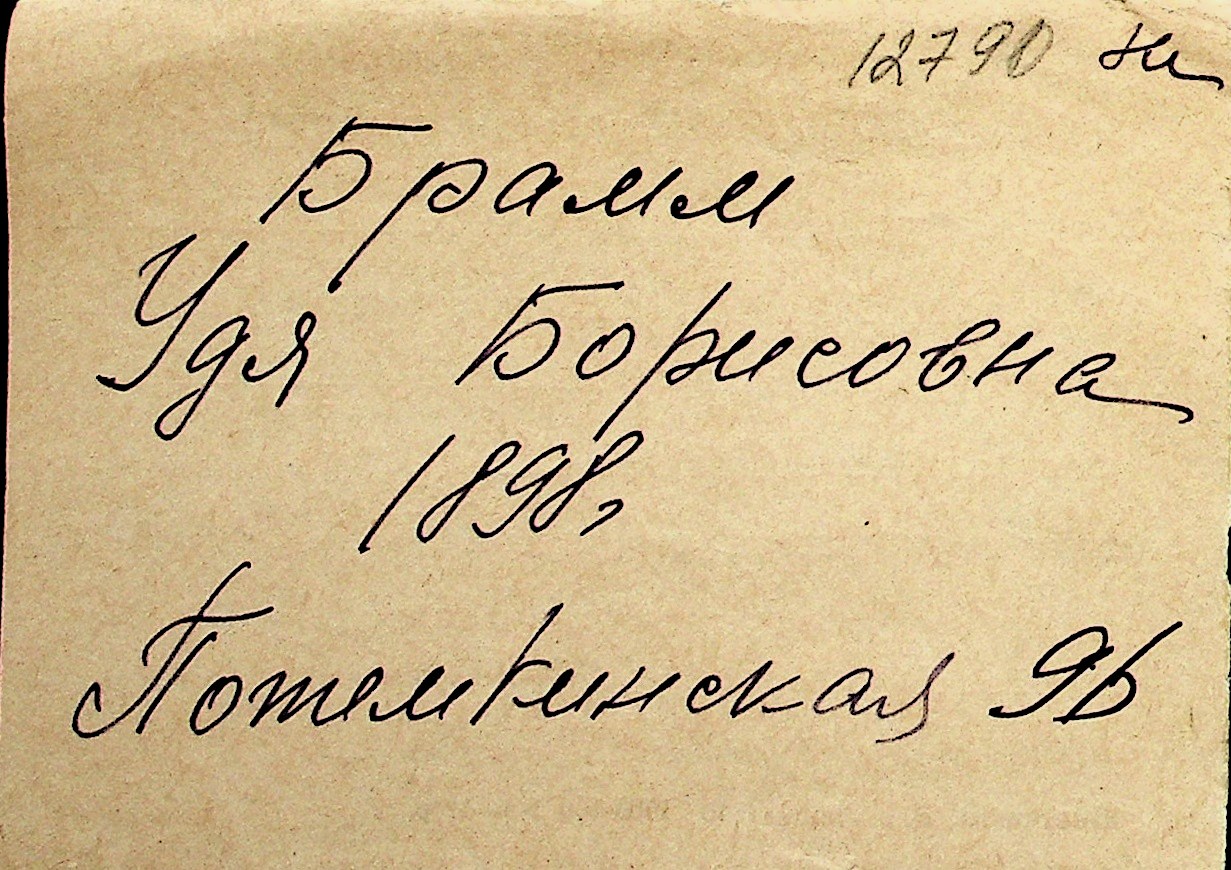 12790 ни
Брамм
Удя Борисовна
1898,
Потемкинская 96